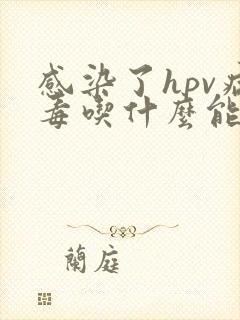 感染了hpv病
毒喫什麼能
蘭庭